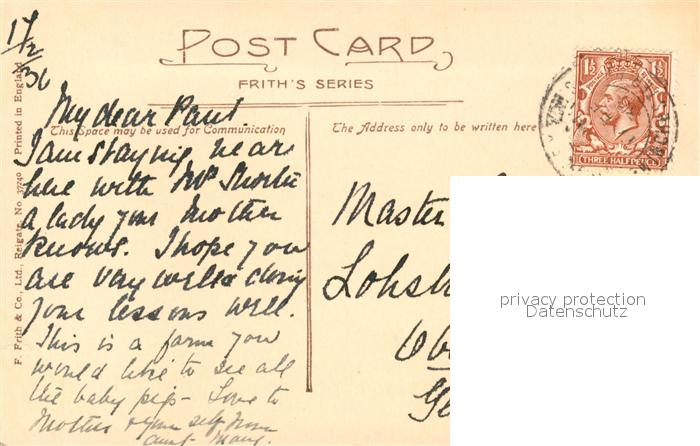 17/2/36
POST CARD
FRITH'S SERIES
This Space may be used for Communication
The Address only to be written here
F. Frith & Co., Ltd., Reigate, No. 32740 Printed in England
My dear Paul
I am staying near
here with Mrs
a lady your Mother
knows. I hope you
are very well & doing
your lessons well.
This is a farm you
would like to see all
the baby pigs - Love to
Mother & your self from
aunt Mary.
Master
1½ 1½
THREE HALFPENCE
privacy protection
Datenschutz